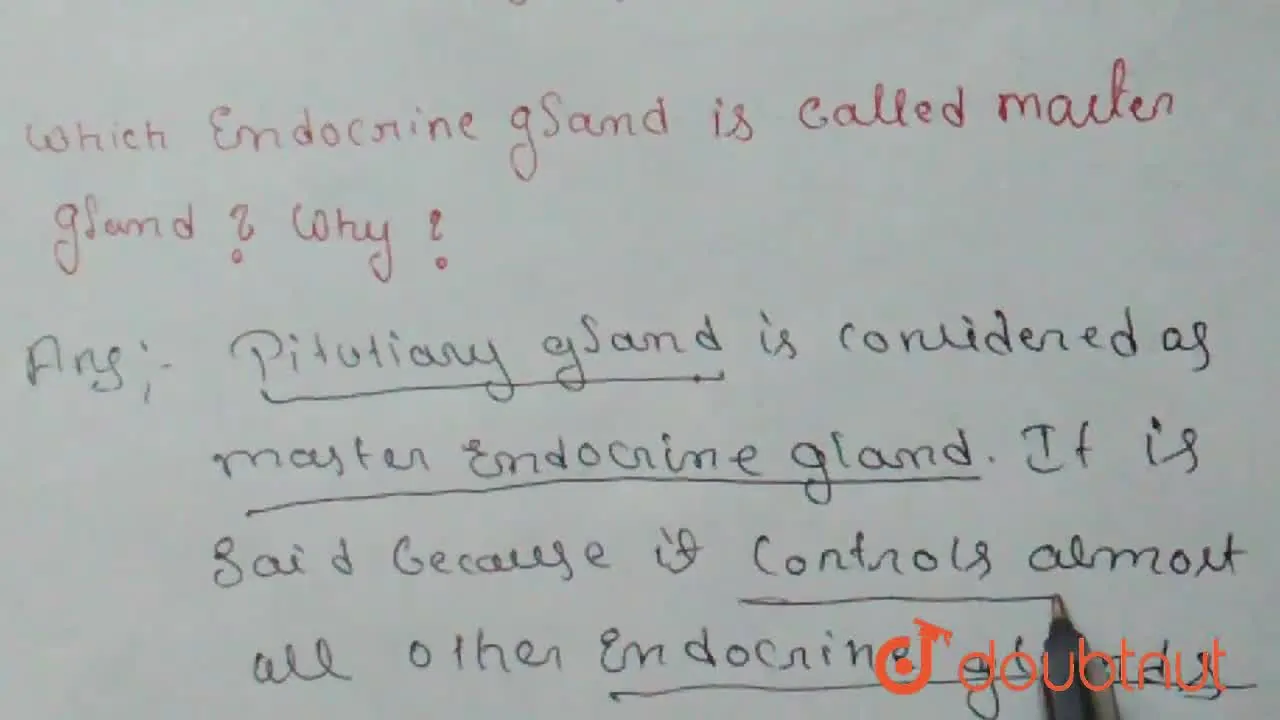 Which Endocrine gland is called master
gland ? Why ?
Ans:- Pitutiary gland is considered as
master Endocrine gland. It is
said because it controls almost
all other Endocrine glands
doubtnut